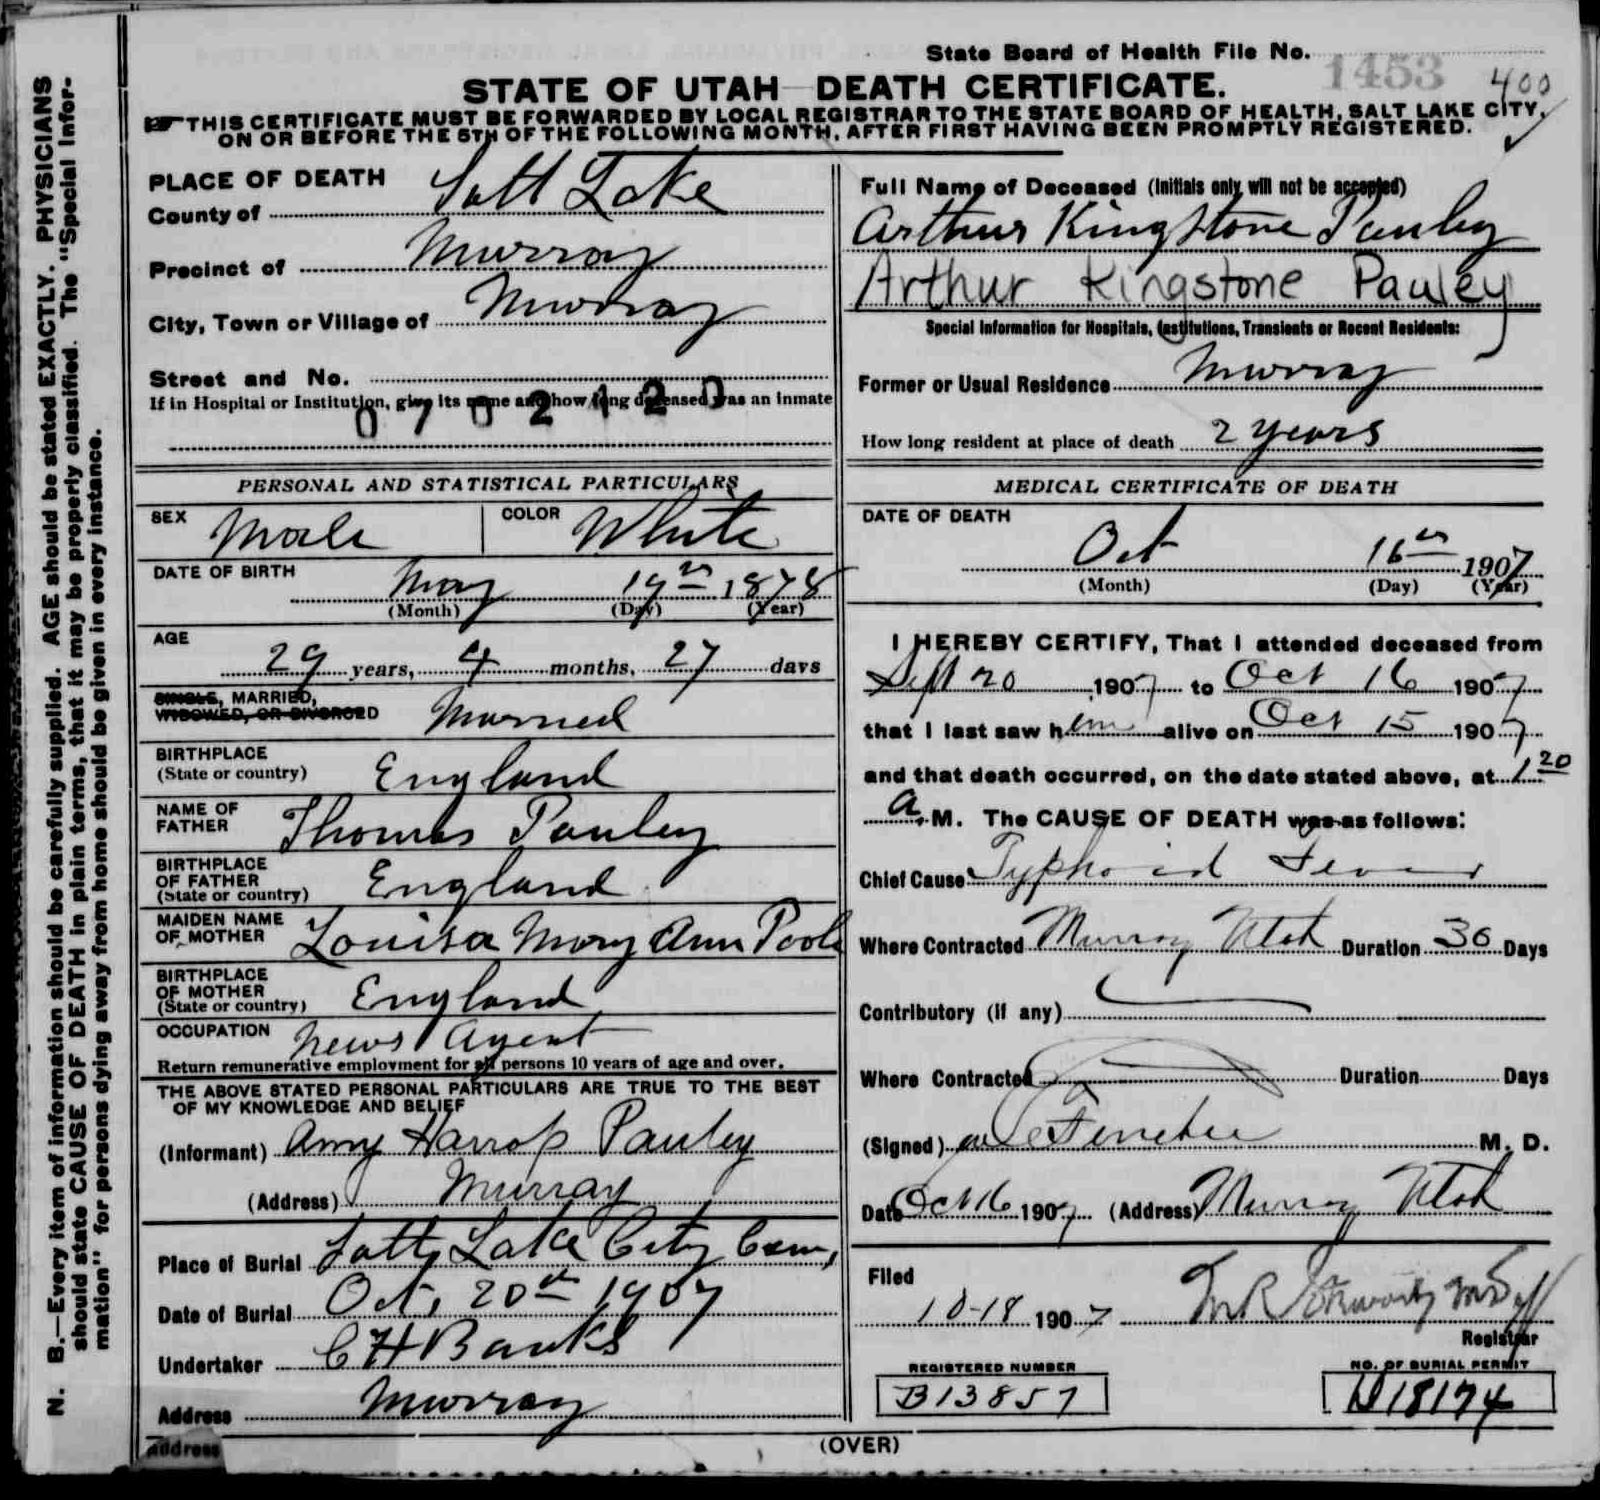 State Board of Health File No. 1453 400
STATE OF UTAH—DEATH CERTIFICATE.
THIS CERTIFICATE MUST BE FORWARDED BY LOCAL REGISTRAR TO THE STATE BOARD OF HEALTH, SALT LAKE CITY,
ON OR BEFORE THE 5TH OF THE FOLLOWING MONTH, AFTER FIRST HAVING BEEN PROMPTLY REGISTERED.
N. B.—Every item of information should be carefully supplied. AGE should be stated EXACTLY. PHYSICIANS
should state CAUSE OF DEATH in plain terms, that it may be properly classified. The "Special Infor-
mation" for persons dying away from home should be given in every instance.
PLACE OF DEATH
County of Salt Lake
Precinct of Murray
City, Town or Village of Murray
Street and No.
If in Hospital or Institution, give its name and how long deceased was an inmate
0702120
Full Name of Deceased (Initials only will not be accepted)
Arthur Kingstone Pauley
Arthur Kingstone Pauley
Special Information for Hospitals, Institutions, Transients or Recent Residents:
Former or Usual Residence Murray
How long resident at place of death 2 years
PERSONAL AND STATISTICAL PARTICULARS
SEX Male COLOR White
DATE OF BIRTH
May 19th 1878
(Month) (Day) (Year)
AGE
29 years, 4 months, 27 days
SINGLE, MARRIED,
WIDOWED, OR DIVORCED Married
BIRTHPLACE
(State or country) England
NAME OF
FATHER Thomas Pauley
BIRTHPLACE
OF FATHER
(State or country) England
MAIDEN NAME
OF MOTHER Louisa Mary Ann Poole
BIRTHPLACE
OF MOTHER
(State or country) England
OCCUPATION News Agent
Return remunerative employment for all persons 10 years of age and over.
THE ABOVE STATED PERSONAL PARTICULARS ARE TRUE TO THE BEST
OF MY KNOWLEDGE AND BELIEF
(Informant) Amy Harrop Pauley
(Address) Murray
Place of Burial Salt Lake City Cem,
Date of Burial Oct, 20th 1907
Undertaker C H Banks
Address Murray
address
MEDICAL CERTIFICATE OF DEATH
DATE OF DEATH
Oct 16th 1907
(Month) (Day) (Year)
I HEREBY CERTIFY, That I attended deceased from
Sept 20 1907 to Oct 16 1907
that I last saw him alive on Oct 15 1907
and that death occurred, on the date stated above, at 1 20
a. M. The CAUSE OF DEATH was as follows:
Chief Cause Typhoid Fever
Where Contracted Murray Utah Duration 30 Days
Contributory (if any)
Where Contracted Duration Days
(Signed) M. D.
Date Oct 16 1907 (Address) Murray Utah
Filed
10-18 1907
Registrar
REGISTERED NUMBER
B13857
NO. OF BURIAL PERMIT
D18174
(OVER)